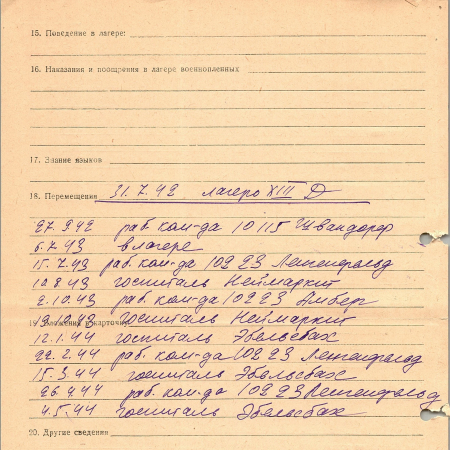 15. Поведение в лагере:
16. Наказания и поощрения в лагере военнопленных
17. Знание языков
18. Перемещения 31.7.42 лагерь XIII Д
27.9.42 раб. ком-да 10115 Швандорф
6.7.43 в лагере
15.7.43 раб. ком-да 10223 Ленгенфельд
10.8.43 госпиталь Неймаркт
2.10.43 раб. ком-да 10223 Амберг
19.10.43 госпиталь Неймаркт
19. Вложения в карточку
12.1.44 госпиталь Эбельсбах
22.2.44 раб. ком-да 10223 Ленгенфельд
15.3.44 госпиталь Эбельсбах
26.4.44 раб. ком-да 10223 Ленгенфельд
4.5.44 госпиталь Эбельсбах
20. Другие сведения